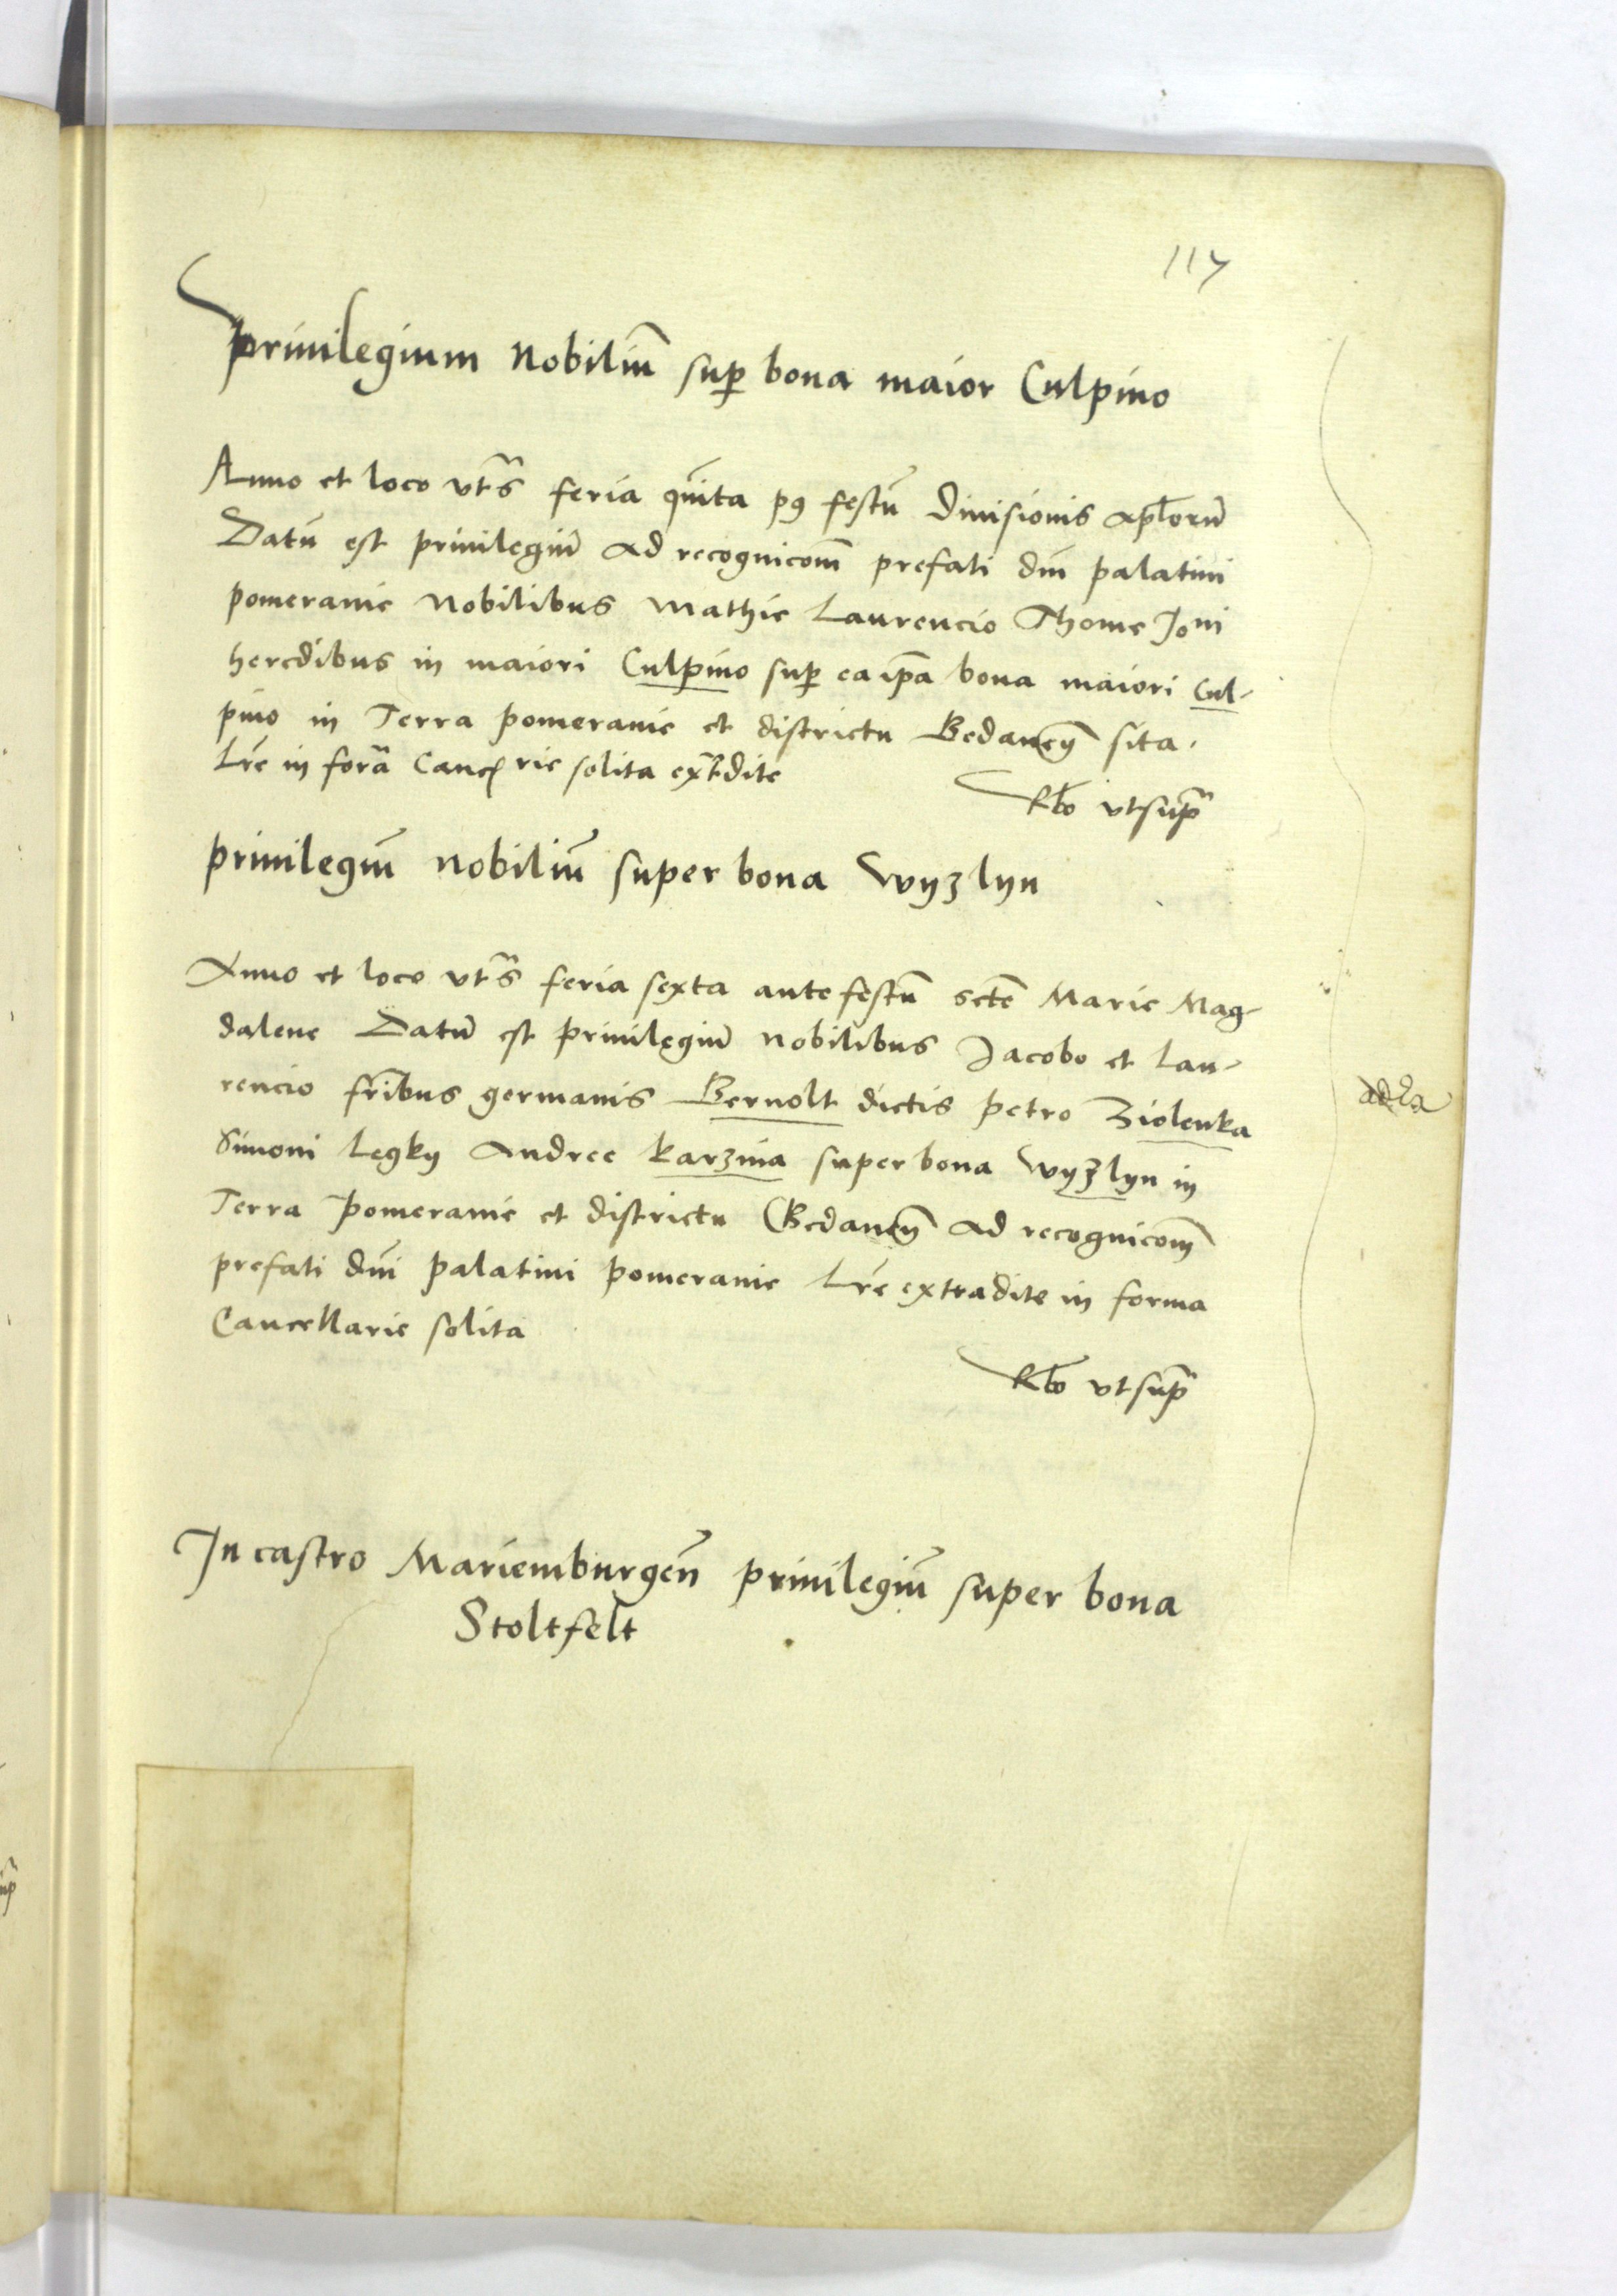 117
Privilegium Nobiliū sup bona maior Culpino
Anno et loco vts feria quīta p9 festū Divisionis aplorū
Datū est privilegiū ad recognicom̄ prefati dn̄i palatini
pomeranie Nobilibus Mathie Laurencio Thome Joni
heredibus in maiori Culpino sup ea ip̄a bona maiori Cul-
pino in Terra pomeranie et districtu Gedanen̄ sita.
Lr̄e in forā Canc̄rie solita extᵃdite
Rl̄o vtsup̄
privilegiū nobiliū super bona Wyzlyn
Anno et loco vts feria sexta ante festū sctē Marie Mag-
dalene Datū est privilegiū nobilibus Jacobo et Lau-
rencio fr̄ibus germanis Bernolt dictis petro Ziolenka
Simoni Legky Andree karzina super bona Wyzlyn in
Terra Pomeranie et districtu Gedanen̄ ad recognicom̄
prefati dn̄i palatini pomeranie Lr̄e extradite in forma
Cancellarie solita
Rl̄o vtsup̄
In castro Mariemburgen̄ privilegiū super bona
Stoltfelt